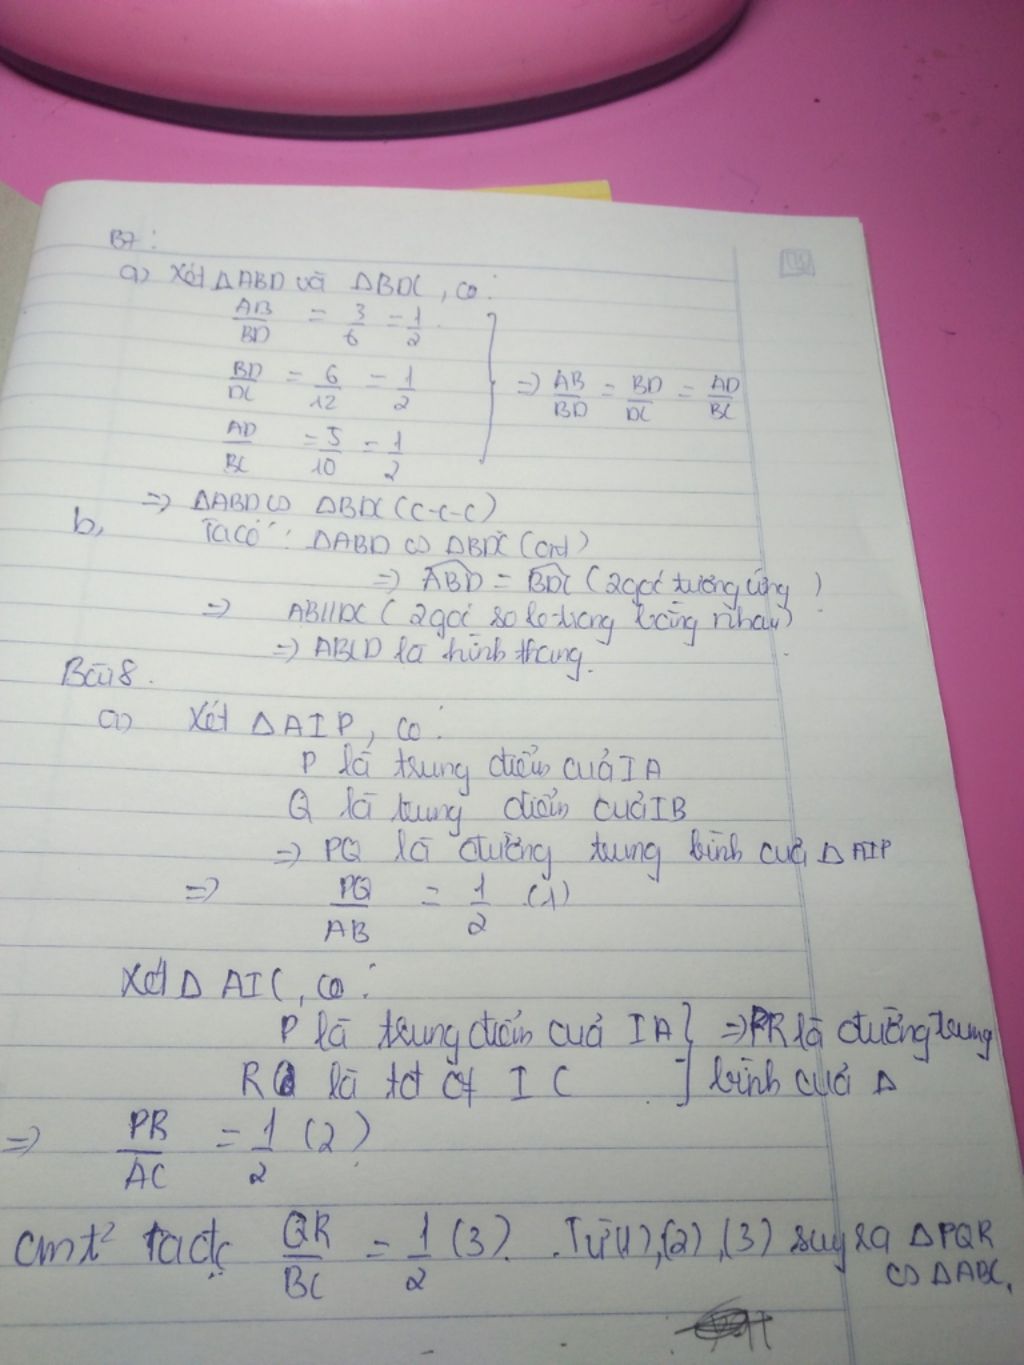 B7:
a) Xét ΔABD và ΔBDC, có:
AB/BD = 3/6 = 1/2
BD/DC = 6/12 = 1/2
AD/BC = 5/10 = 1/2
=> AB/BD = BD/DC = AD/BC
=> ΔABD ∽ ΔBDC (C-C-C)
b, Ta có: ΔABD ∽ ΔBDC (cmt)
=> ABD = BDC (2 góc tương ứng)
=> AB//DC (2 góc so le trong bằng nhau)
=> ABCD là hình thang.
Bài 8.
a) Xét ΔAIP, có:
P là trung điểm cuả IA
Q là trung điểm cuả IB
=> PQ là đường trung bình cuả ΔAIP
=> PQ/AB = 1/2 (1)
Xét Δ AIC, có:
P là trung điểm cuả IA
R là tđ of IC
=> PR là đường trung
bình cuả Δ
=> PR/AC = 1/2 (2)
cmt² ta đc QR/BC = 1/2 (3). Từ (1),(2),(3) suy ra ΔPQR
∽ ΔABC.